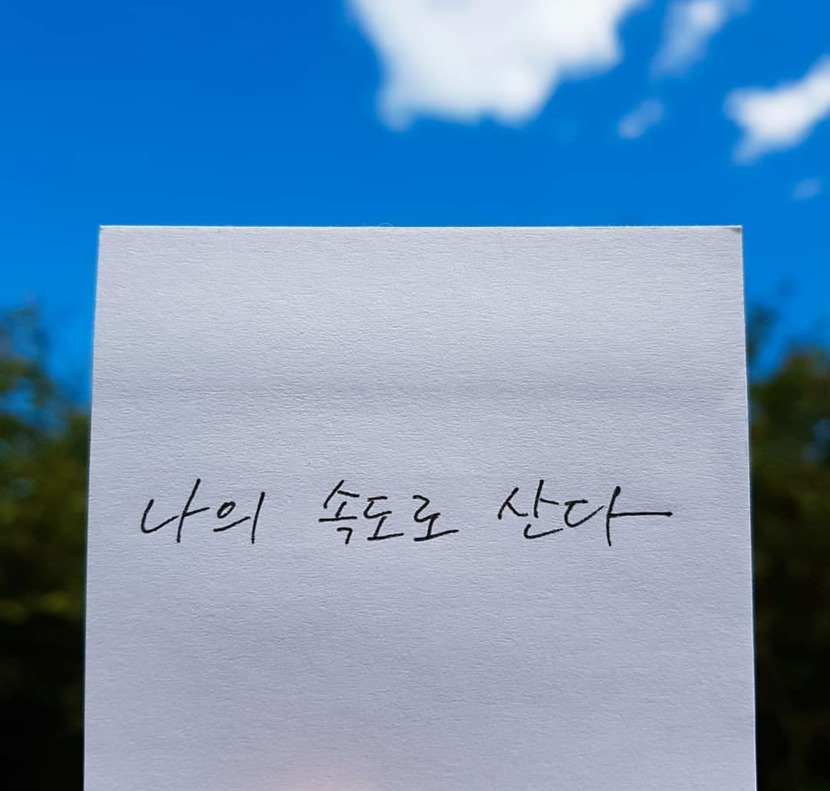 나의 속도로 산다